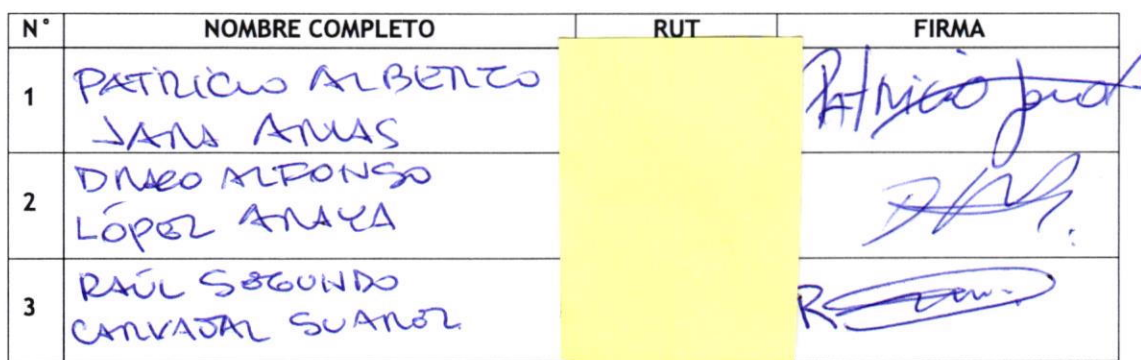 N° NOMBRE COMPLETO RUT FIRMA
1 PATRICIO ALBERTO Patricio Jara
JARA ARIAS
2 DRAGO ALFONSO
LÓPEZ ARAYA
3 RAÚL SEGUNDO
CARVAJAL SUAREZ